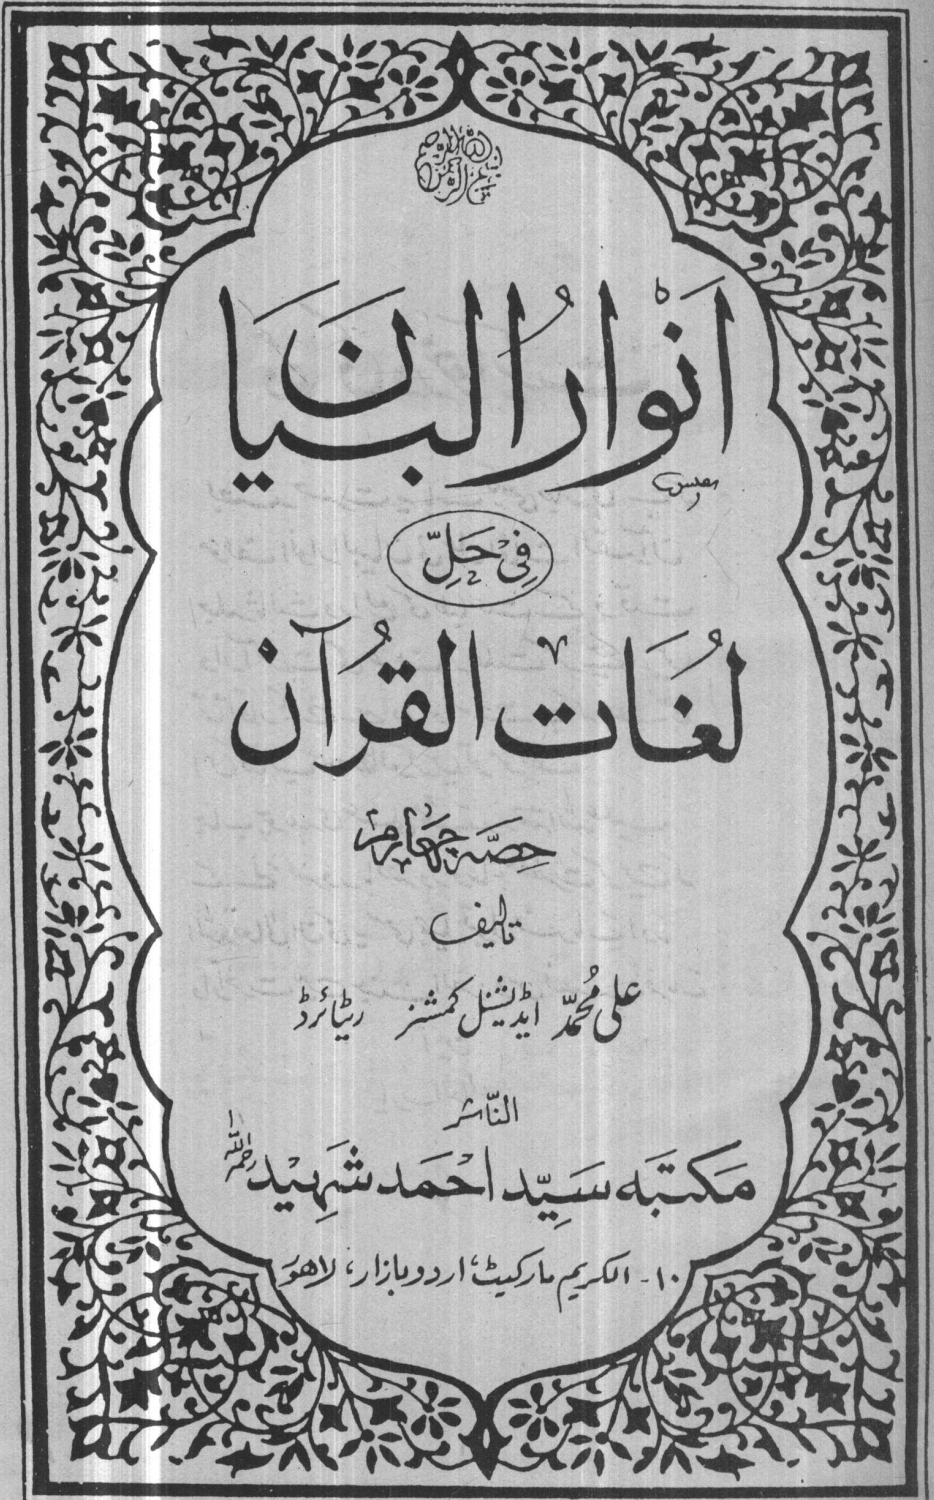 بسم الله الرحمن الرحيم
اَنْوارُ البَيَان
فِىْ حَلِّ
لُغَات القُرآنْ
حِصّہ چہارم
تالیف
علی مُحمّد ایڈیشنل کمشنر ریٹائرڈ
النّاشر
مَکتبَہ سَیّد اَحْمَد شَہِیْد رحمہ اللہ
۱۰۔ الکریم مارکیٹ، اردو بازار، لاھور